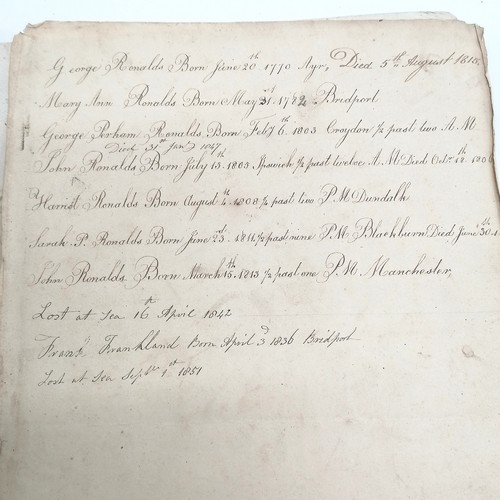 George Ronalds Born June 20th 1770 Ayr, Died 5th August 1815,
Mary Ann Ronalds Born May 31st 1782 Bridport
George Perham Ronalds Born Feby 6th 1803 Croydon ½ past two A M
Died 31st Jany 1847
John Ronalds Born July 15th 1805 Ipswich ½ past twelve A M Died Octr 12th 1806
Harriot Ronalds Born August 4th 1808 ½ past two P M Dundalk
Sarah P. Ronalds Born June 23d 1811 ½ past nine P M Blackburn Died June 30th
John Ronalds Born March 15th 1813 ½ past one P M Manchester,
Lost at Sea 16th April 1842
Frankland Born April 3d 1836 Bridport
Lost at Sea Sepbr 1st 1851